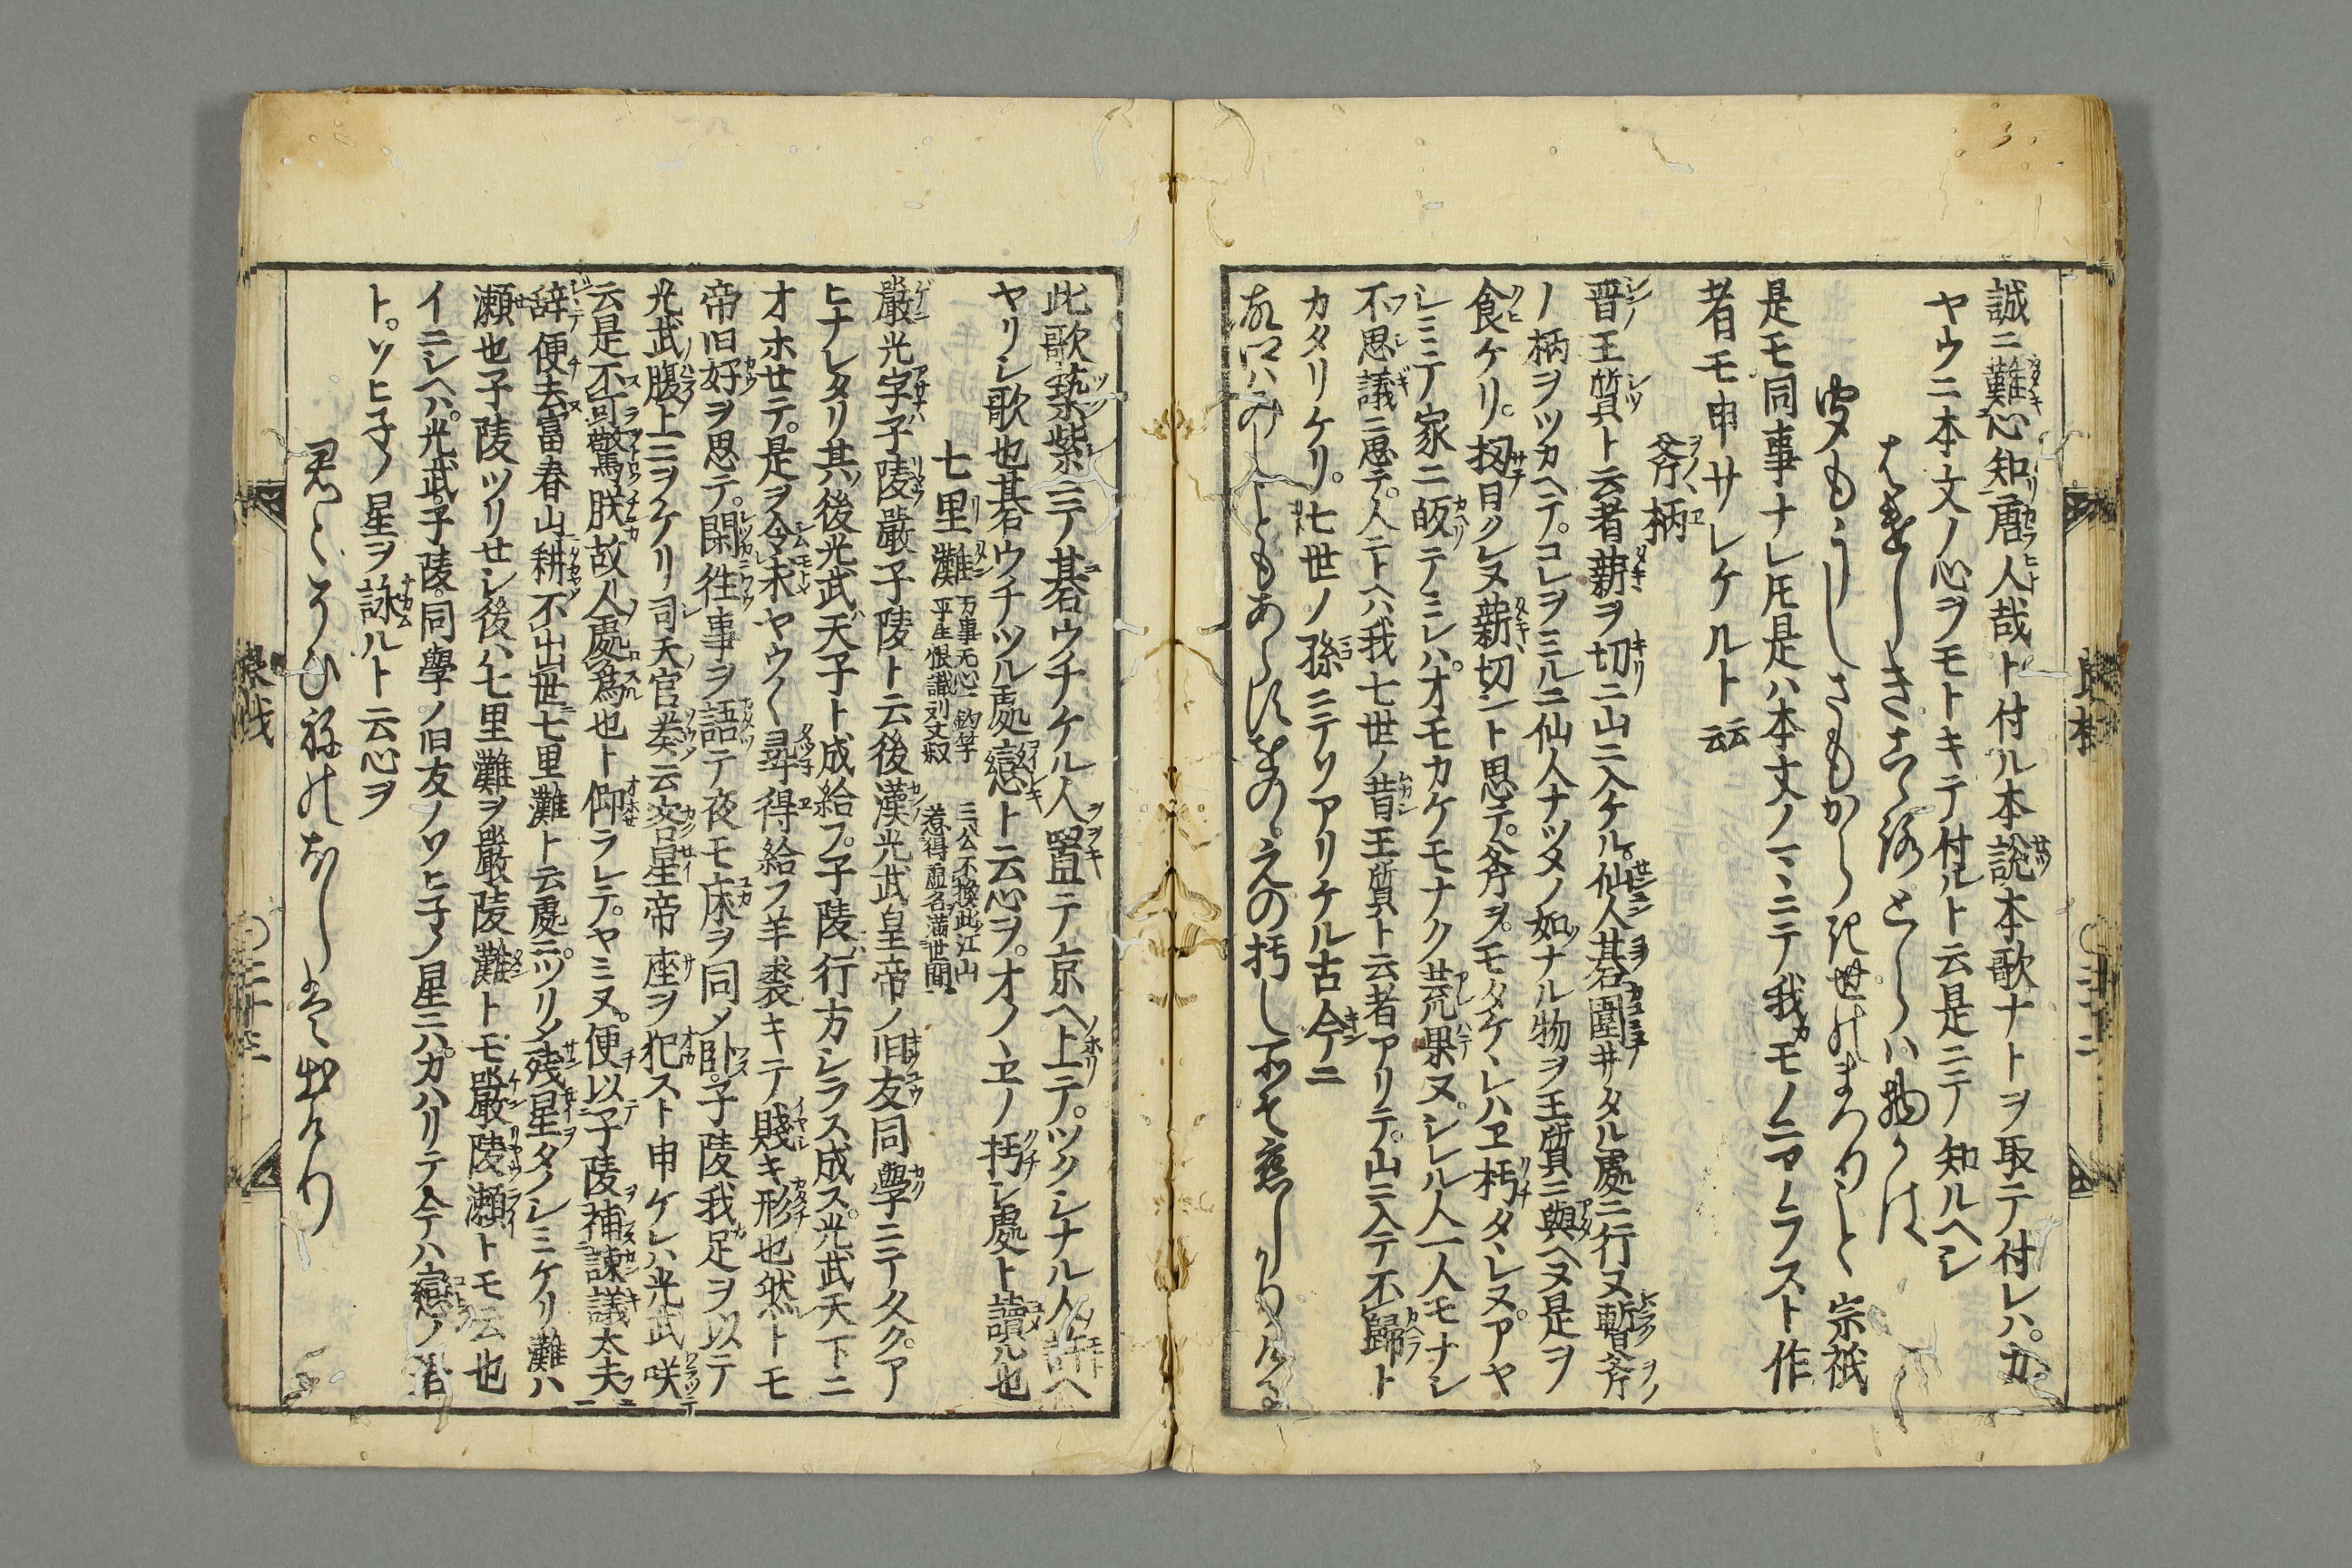 誠ニ難心知唐人哉ト付ル本説本歌ナトヲ取テ付レハ。カ
ヤウニ本文ノ心ヲモトキテ付ルト云是ニテ知ルヘシ
是モ同事ナレ圧是ハ本文ノマヽニテ我モノニマトラスト作
者モ申サレケルト云云
斧柄
晋王質ト云者薪ヲ切ニ山ニ入ケル。仙人碁圍井タル處ニ行又暫斧
ノ柄ヲツカヘテ。コレヲミルニ仙人ナツメノ如ナル物ヲ王質ニ與ヘヌ是ヲ
食ケリ。扨日クレヌ薪切ント思テ。斧ヲ。モタケヽレハヱ朽タヽレヌ。アヤ
シミテ家ニ皈テミレハ。オモカケモナク荒果ヌ。シレル人一人モナシ
不思議ニ思テ。人ニトヘハ我七世ノ昔王質ト云者アリテ。山ニ入テ不歸ト
カタリケリ。七世ノ孫ニテソアリケル古今ニ
故郷はみしこともあらすをのゝえの朽し所そ恋しかりける
此歌筑紫ニテ碁ウチケル人ヲ置テ京ヘ上テ。ツクシナル人ノ許ヘ
ヤリシ歌也碁ウチツル處戀ト云心ヲ。オノヽヱノ朽シ處ト讀ル也
七里灘 万事无心一釣竿 三公不換此江山
平生恨識刘文叔 惹得虚名満世間
嚴光字子陵嚴子陵ト云後漢光武皇帝ノ旧友同學ニテ久ク。ア
ヒナレタリ其後光武天子ト成給フ。子陵行方シラス成ス。光武天下ニ
オホせテ。是ヲ令求ヤウ〱尋得給フ羊裘キテ賤キ形也然トモ
帝旧好ヲ思テ。閑徃事ヲ語テ夜モ床ヲ同メ臥。子陵我足ヲ以テ
光武腹上ニヲケリ司天官奏云客星帝座ヲ犯スト申ケレハ光武咲
云是不可驚朕故人處爲也ト仰ラレテ。ヤミヌ。便以子陵補諫議太夫
辞便去富春山耕不出世七里灘ト云處ニ。ツリメ残星タノレミケリ灘ハ
瀬也子陵ツリせシ後ハ七里灘ヲ嚴陵灘トモ嚴陵瀬トモ云也
イニシヘハ。光武。子陵。同學ノ旧友ノソヒ子ノ星ニハ。カハリテ今ハ戀ノ
ト。ソヒ子ノ星ヲ詠ルト云心ヲ